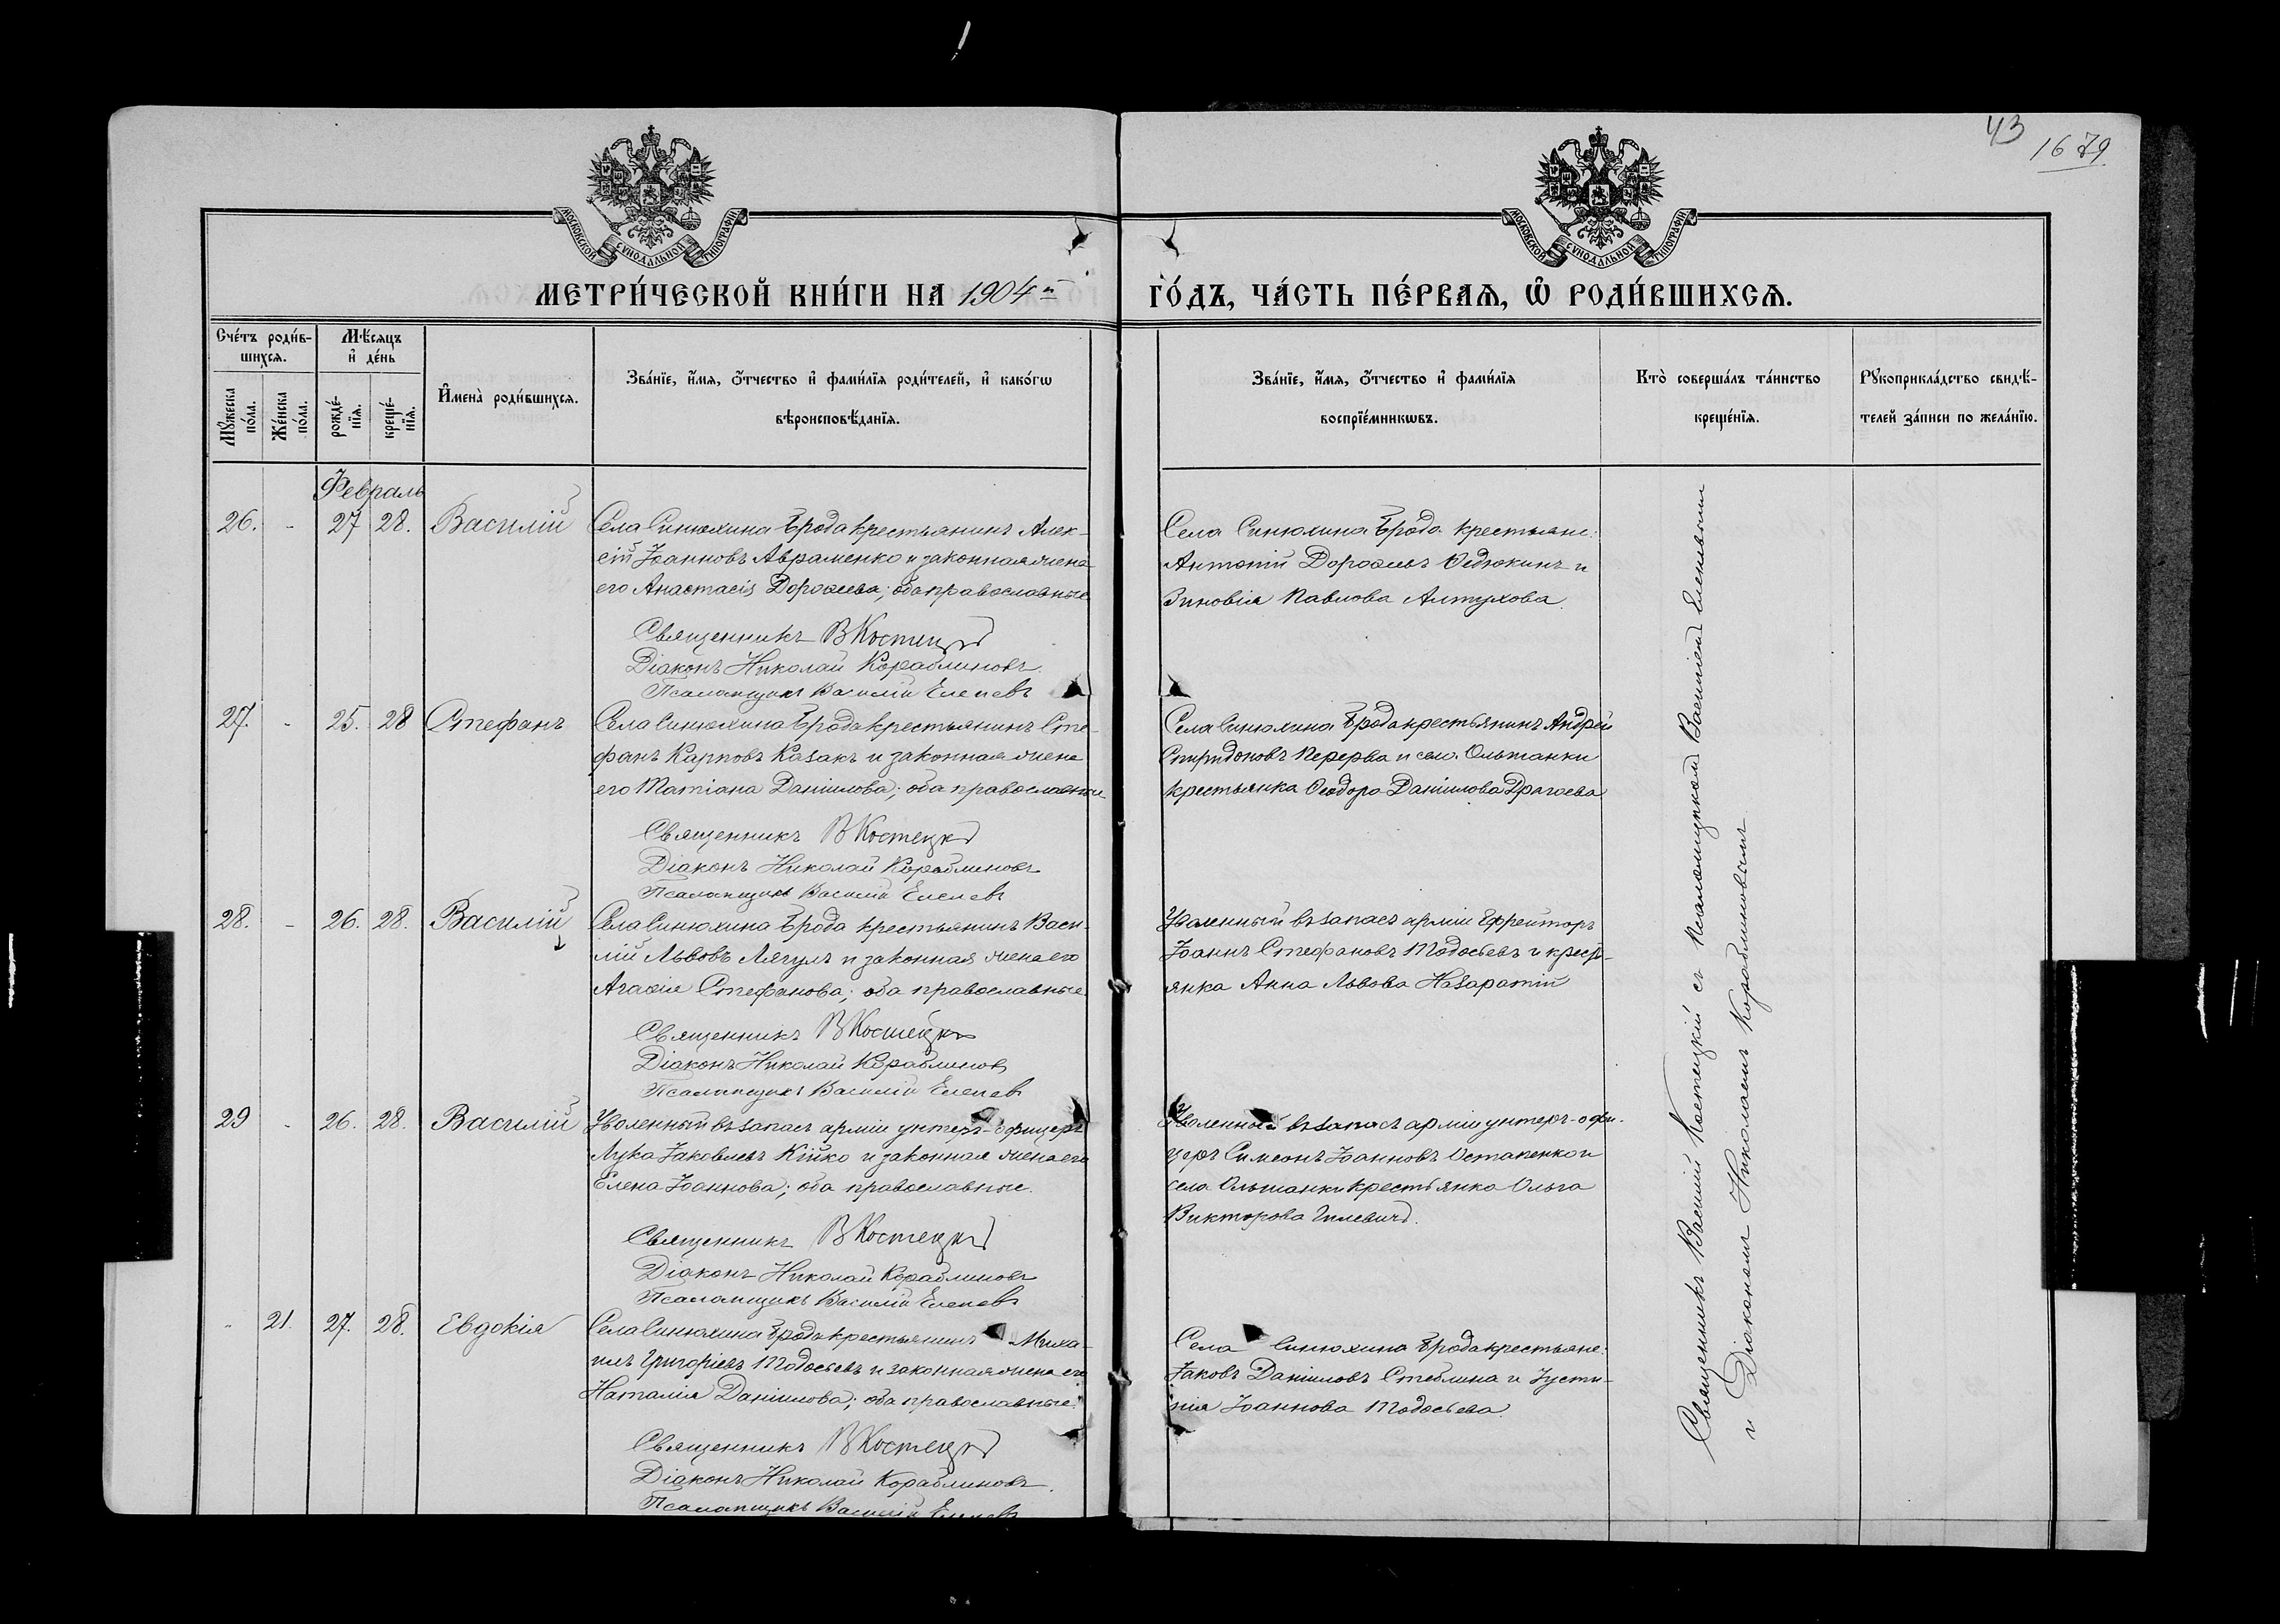 43
1679
МОСКОВСКОЙ СѴНОДАЛЬНОЙ ТИПОГРАФІИ
МОСКОВСКОЙ СѴНОДАЛЬНОЙ ТИПОГРАФІИ
МЕТРИ́ЧЕСКОЙ КНИ́ГИ НА 1904 й
ГО́ДЪ, ЧА́СТЬ ПЕ́РВАѦ, Ѽ РОДИ́ВШИХСѦ.
Сче́тъ роди́в-
шихсѧ.
Мꙋ́жеска по́ла.
Же́нска по́ла.
Мѣ́сѧцъ
и҆ де́нь
рожде́-
нїѧ.
креще́-
нїѧ.
И҆мена̀ роди́вшихсѧ.
Зва́нїе, и҆́мѧ, ѻ҆́тчество и҆ фами́лїѧ роди́телей, и҆ како́гѡ
вѣроисповѣ́данїѧ.
Зва́нїе, и҆́мѧ, ѻ҆́тчество и҆ фами́лїѧ
воспрїе́мникѡвъ.
Кто̀ соверша́лъ та́инство
креще́нїѧ.
Рꙋкоприкла́дство свидѣ́-
телей за́писи по жела́нїю.
Февраль
26. - 27 28. Василій
Села Синюхина Брода крестьянинъ Алек-
сій Іоанновъ Авраменко и законная жена
его Анастасія Дороѳеева; оба православные
Священникъ В Костецкій
Діаконъ Николай Кораблиновъ
Псаломщикъ Василій Елепевъ
Села Синюхина Брода крестьяне:
Антоній Дороѳеевъ Ѳедюкинъ и
Зиновія Павлова Алтухова.
27. - 25. 28 Стефанъ
Села Синюхина Брода крестьянинъ Сте-
фанъ Карповъ Казакъ и законная жена
его Татіана Даніилова; оба православные
Священникъ В Костецкій
Діаконъ Николай Кораблиновъ
Псаломщикъ Василій Елепевъ
Села Синюхина Брода крестьянинъ Андрей
Спиридоновъ Перерва и села Ольшанки
крестьянка Ѳеодора Даніилова Драгоева
28. - 26. 28. Василій
Села Синюхина Брода крестьянинъ Васи-
лій Львовъ Лягулъ и законная жена его
Агаѳія Стефанова; оба православные
Священникъ В Костецкій
Діаконъ Николай Кораблиновъ
Псаломщикъ Василій Елепевъ
Уволенный въ запасъ арміи Ефрейторъ
Іоаннъ Стефановъ Тодосьевъ и крест-
янка Анна Львова Назаратій
29 - 26. 28. Василій
Уволенный въ запасъ арміи унтеръ-офицеръ
Лука Іаковлевъ Кійко и законная жена его
Елена Іоаннова; оба православные.
Священникъ В Костецкій
Діаконъ Николай Кораблиновъ
Псаломщикъ Василій Елепевъ
Уволенный въ запасъ арміи унтеръ-офи-
церъ Симеонъ Іоанновъ Остапенко и
села Ольшанки крестьянка Ольга
Викторова Гилевичъ.
- 21. 27. 28. Евдокія
Села Синюхина Брода крестьянинъ Миха-
илъ Григоріевъ Тодосьевъ и законная жена его
Наталія Даніилова; оба православные.
Священникъ В Костецкій
Діаконъ Николай Кораблиновъ.
Псаломщикъ Василій Елепевъ
Села Синюхина Брода крестьяне:
Іаковъ Даніиловъ Стеблина и Іусти-
нія Іоаннова Тодосьева.
Священникъ Василій Костецкій съ Псаломщикомъ Василіемъ Елепевымъ
и Діакономъ Николаемъ Кораблиновымъ